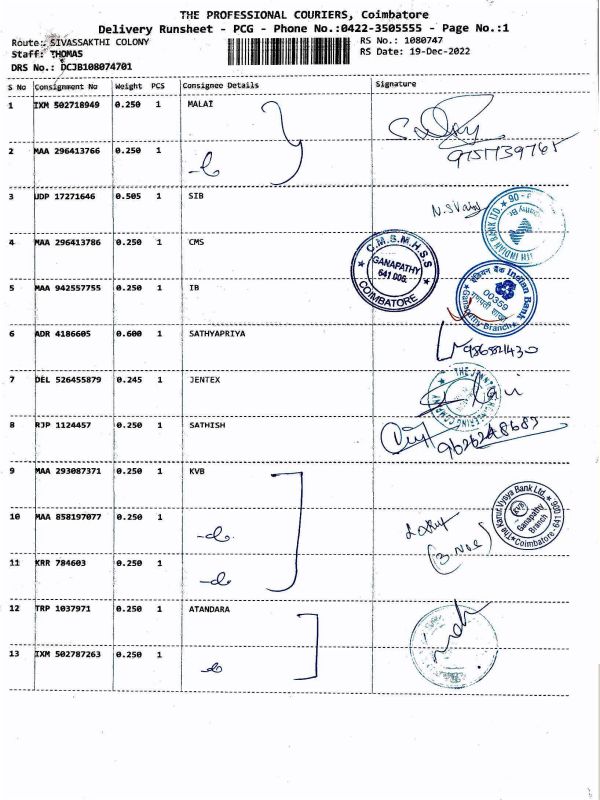 THE PROFESSIONAL COURIERS, Coimbatore
Delivery Runsheet - PCG - Phone No.:0422-3505555 - Page No.:1
Route: SIVASSAKTHI COLONY
RS No.: 1080747
Staff: THOMAS
RS Date: 19-Dec-2022
DRS No.: DCJB108074701
S No Consignment No Weight PCS Consignee Details Signature
1 IXM 502718949 0.250 1 MALAI
2 MAA 296413766 0.250 1
3 UDP 17271646 0.505 1 SIB
4 MAA 296413786 0.250 1 CMS
C.M.S.M.H.S.S
GANAPATHY
641 006.
COIMBATORE
5 MAA 942557755 0.250 1 IB
इंडियन बैंक Indian Bank
00359
गणपती शाखा
Ganapathy Branch
6 ADR 4186605 0.600 1 SATHYAPRIYA
7 DEL 526455879 0.245 1 JENTEX
8 RJP 1124457 0.250 1 SATHISH
9 MAA 293087371 0.250 1 KVB
The Karur Vysya Bank Ltd.
KVB
Ganapathy
Branch
Coimbatore - 641 006
10 MAA 858197077 0.250 1
(3. Nos)
11 KRR 784603 0.250 1
12 TRP 1037971 0.250 1 ATANDARA
13 IXM 502787263 0.250 1